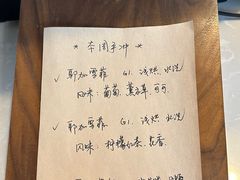 * 本周手冲 *
✓ 耶加雪菲 G1. 浅烘. 水洗
风味: 葡萄. 薰衣草. 可可.
✓ 耶加雪菲 G1. 浅烘. 水洗
风味: 柠檬红茶. 花香.